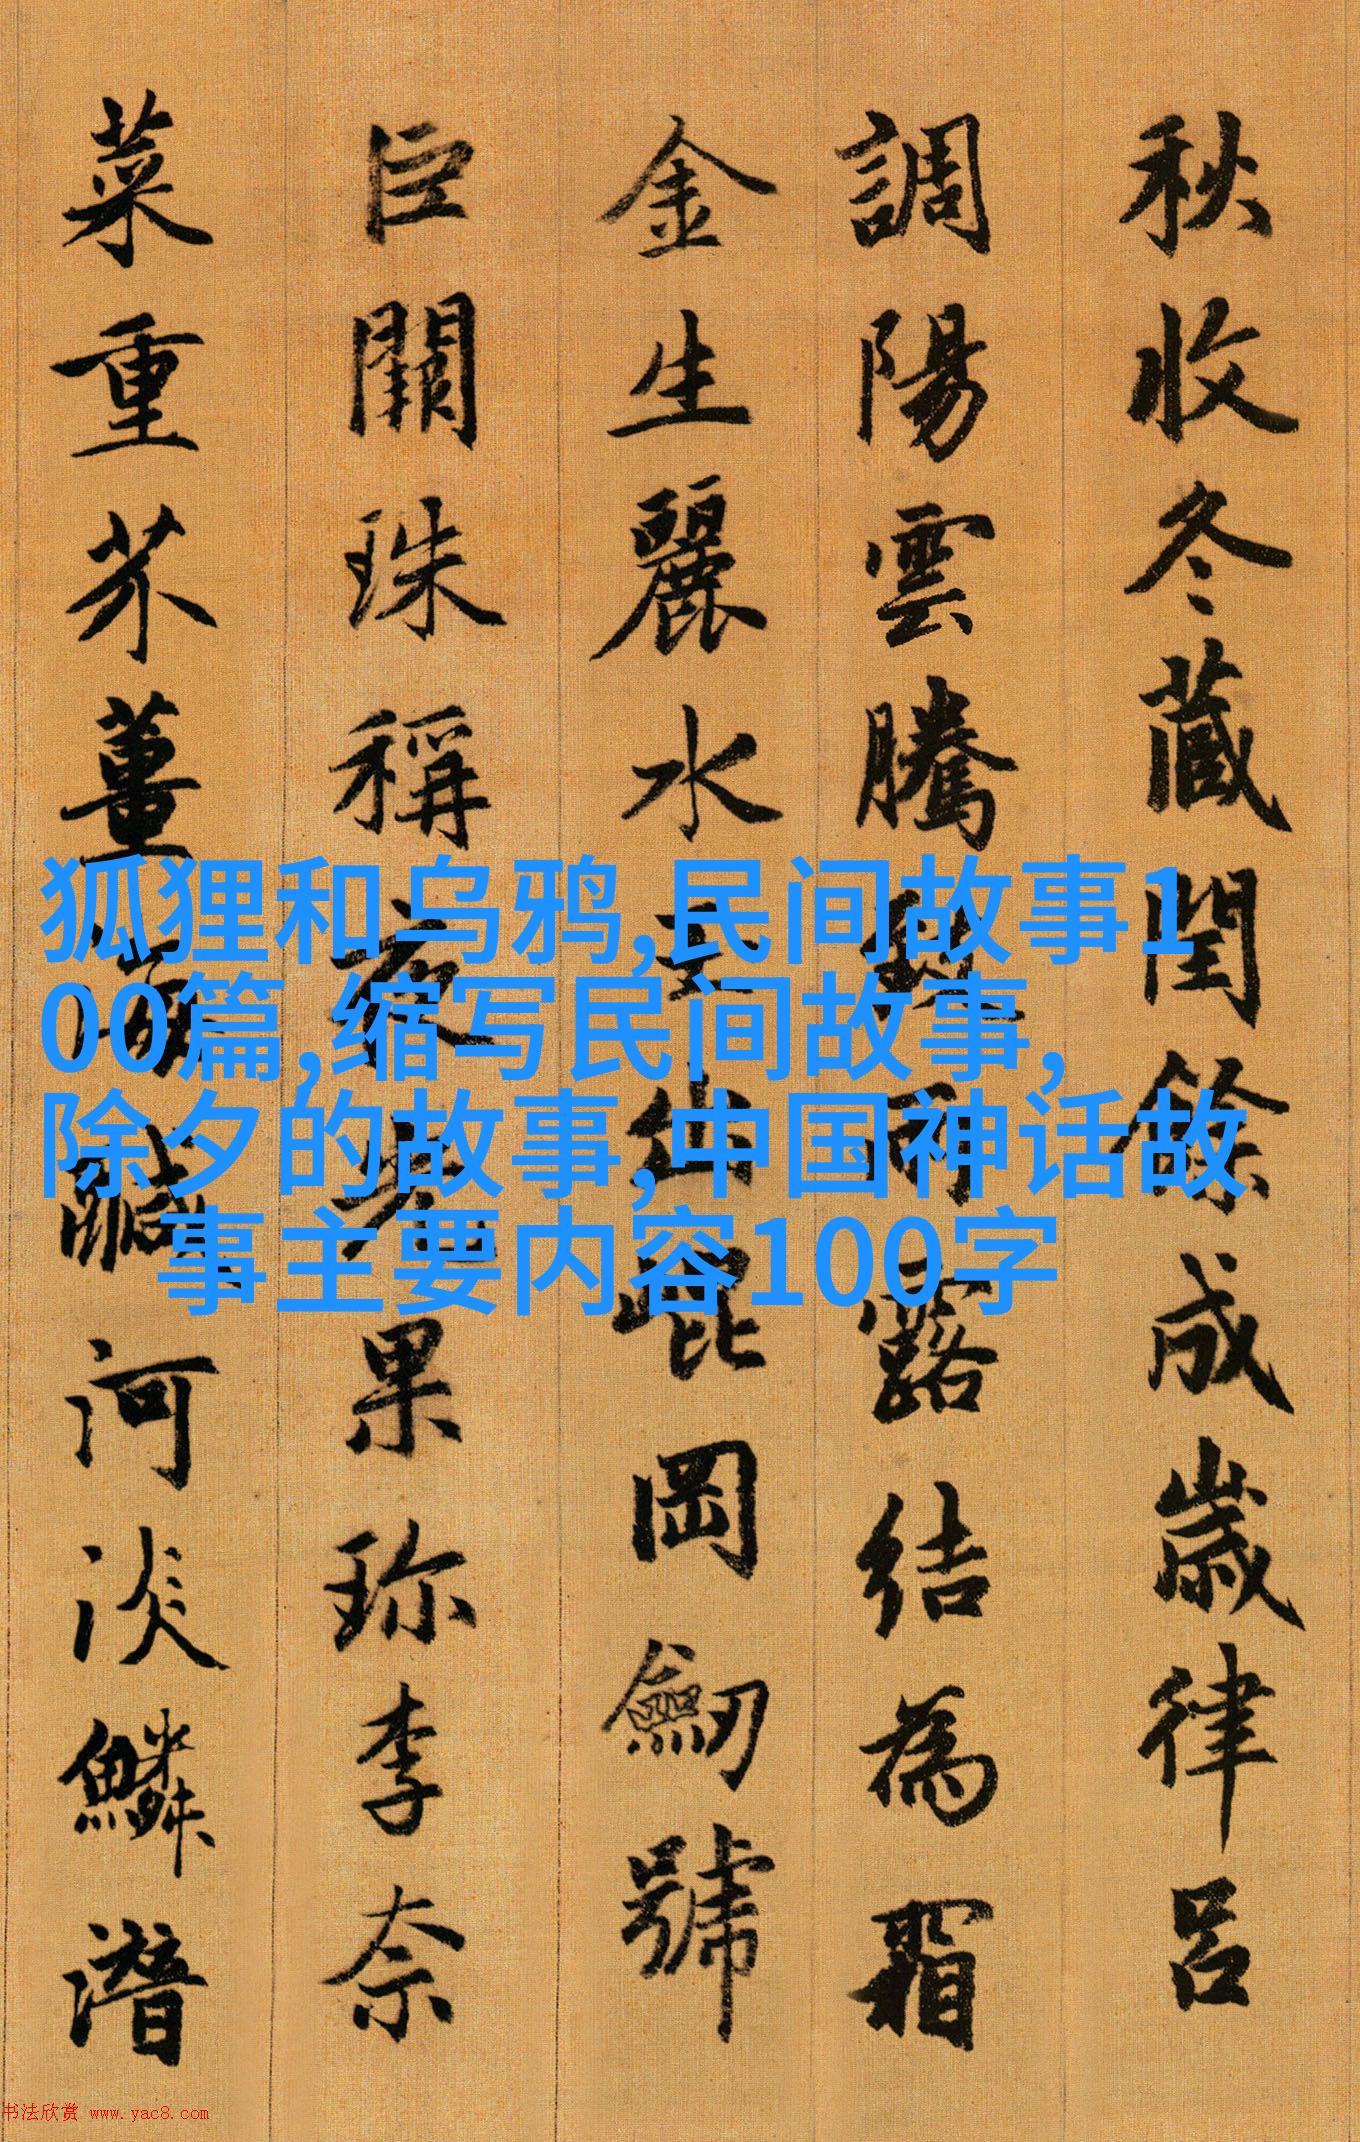 秋收冬藏閏餘成歲律呂
調陽雲騰致雨露結為霜
金生麗水玉出崐岡劒號
巨闕珠稱夜光果珎李柰
菜重芥薑海鹹河淡鱗潛
狐狸和乌鸦,民间故事1
00篇,缩写民间故事,
除夕的故事,中国神话故
事主要内容100字
书法欣赏 www.yac8.com